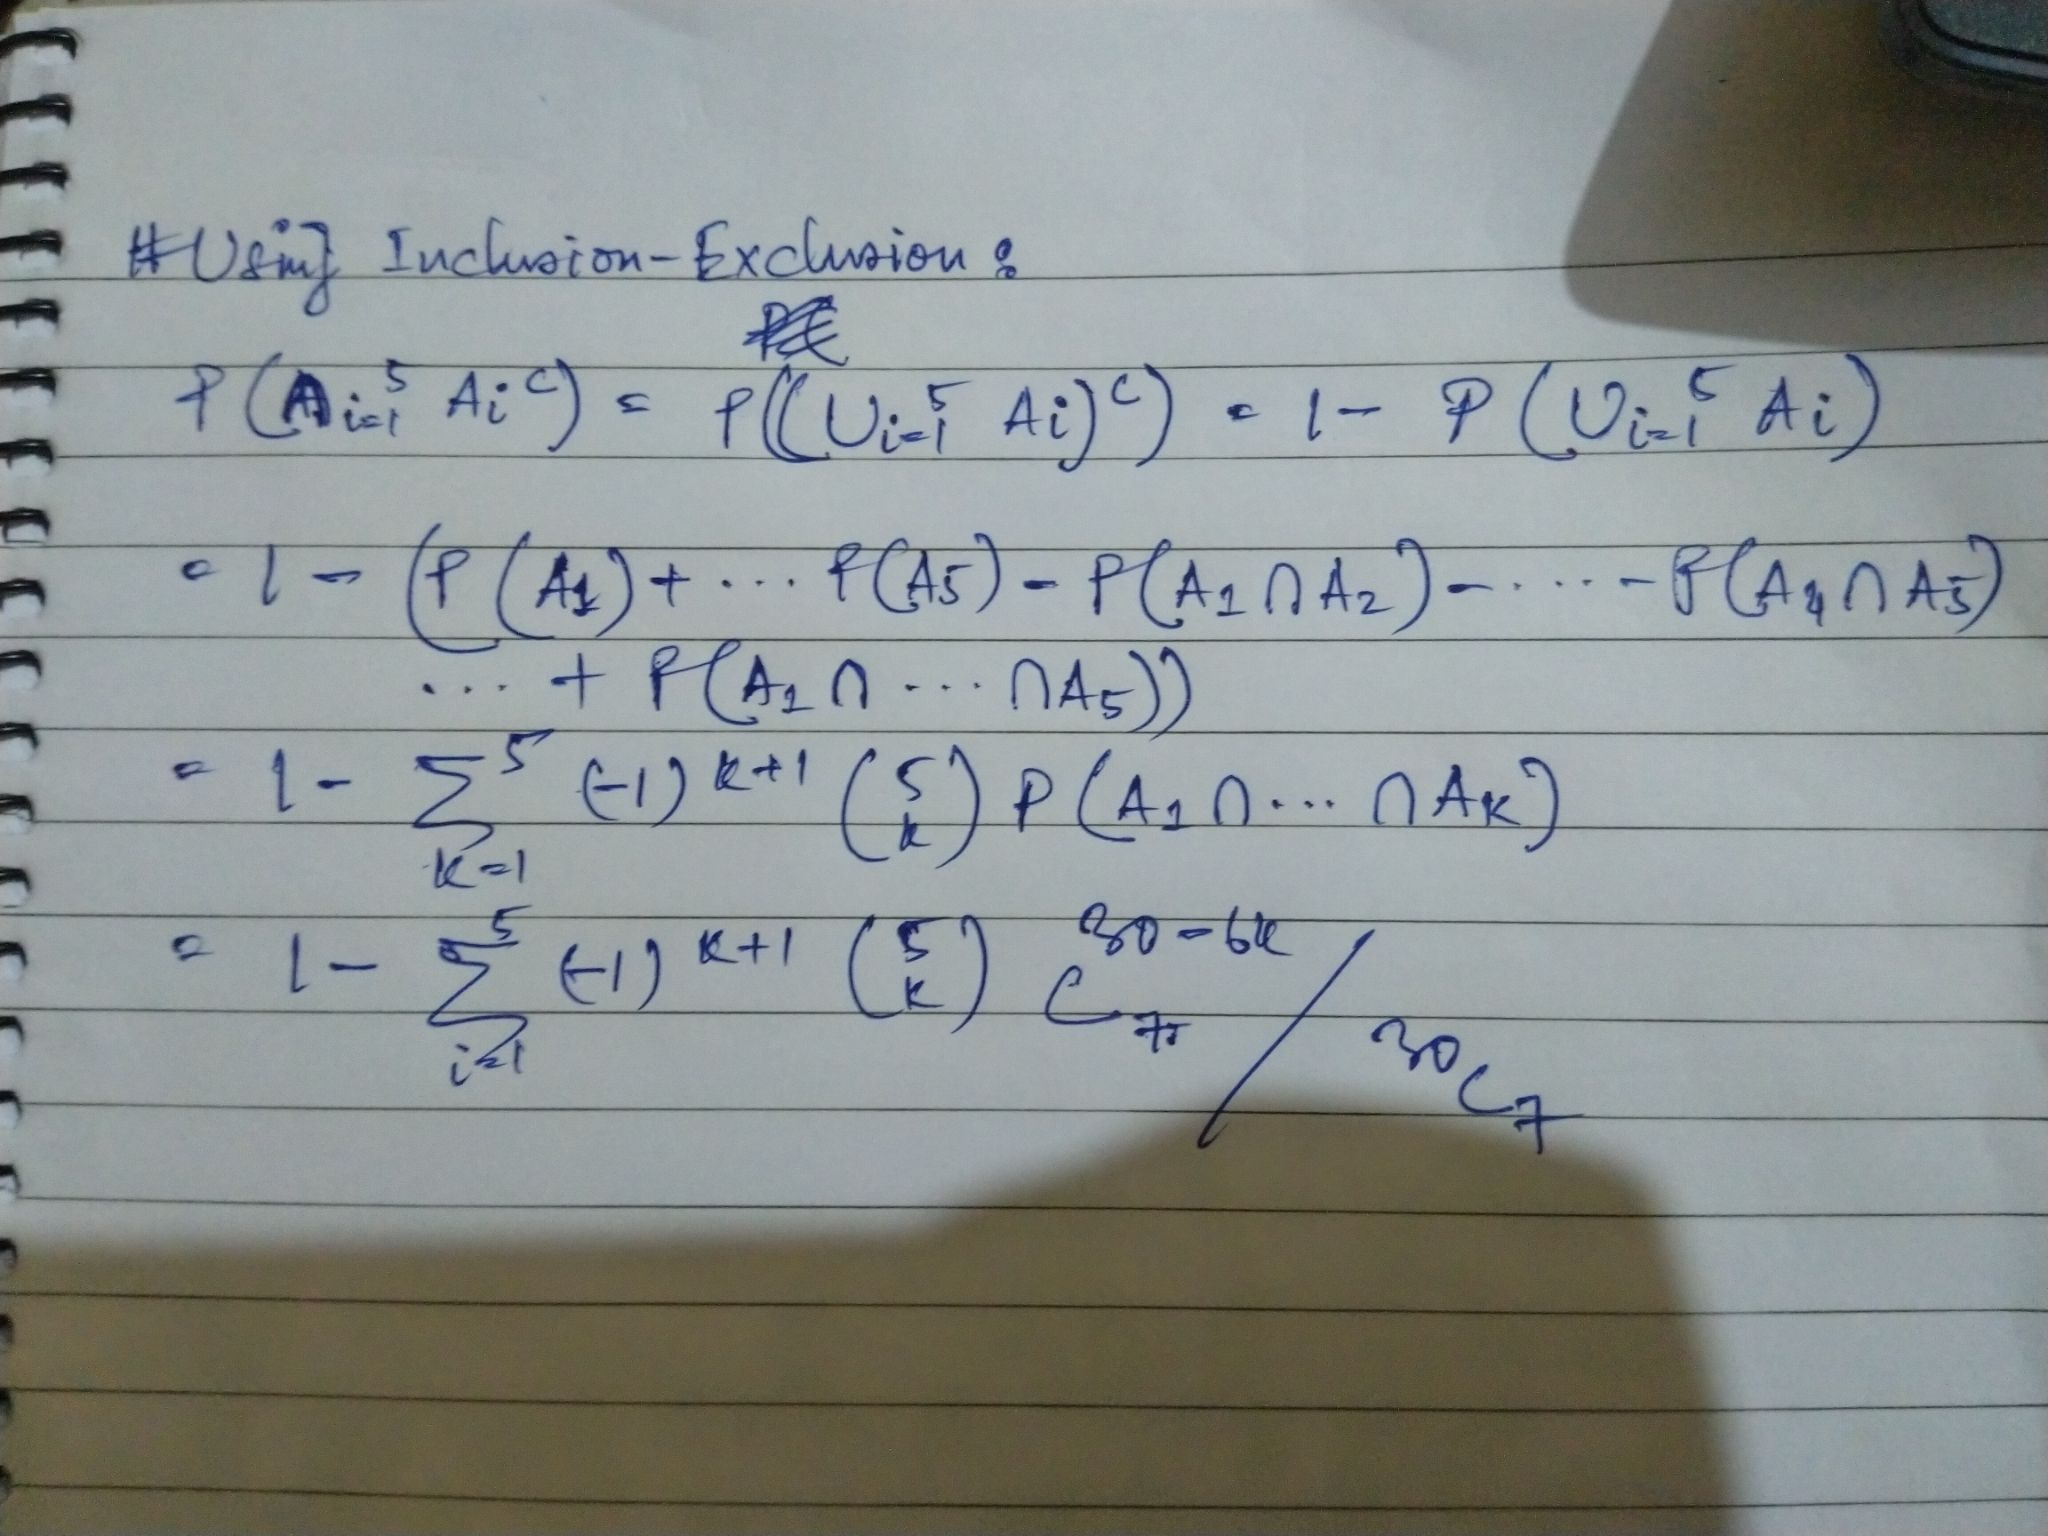 # Using Inclusion-Exclusion :
P(∩i=1^5 Ai^c) = P((∪i=1^5 Ai)^c) = 1 - P(∪i=1^5 Ai)
= 1 - (P(A1) + ... P(A5) - P(A1 ∩ A2) - ... - P(A4 ∩ A5)
... + P(A1 ∩ ... ∩ A5))
= 1 - ∑_{k=1}^5 (-1)^{k+1} (5 k) P(A1 ∩ ... ∩ AK)
= 1 - ∑_{i=1}^5 (-1)^{k+1} (5 k) ^{30-6k}C_7 / ^{30}C_7